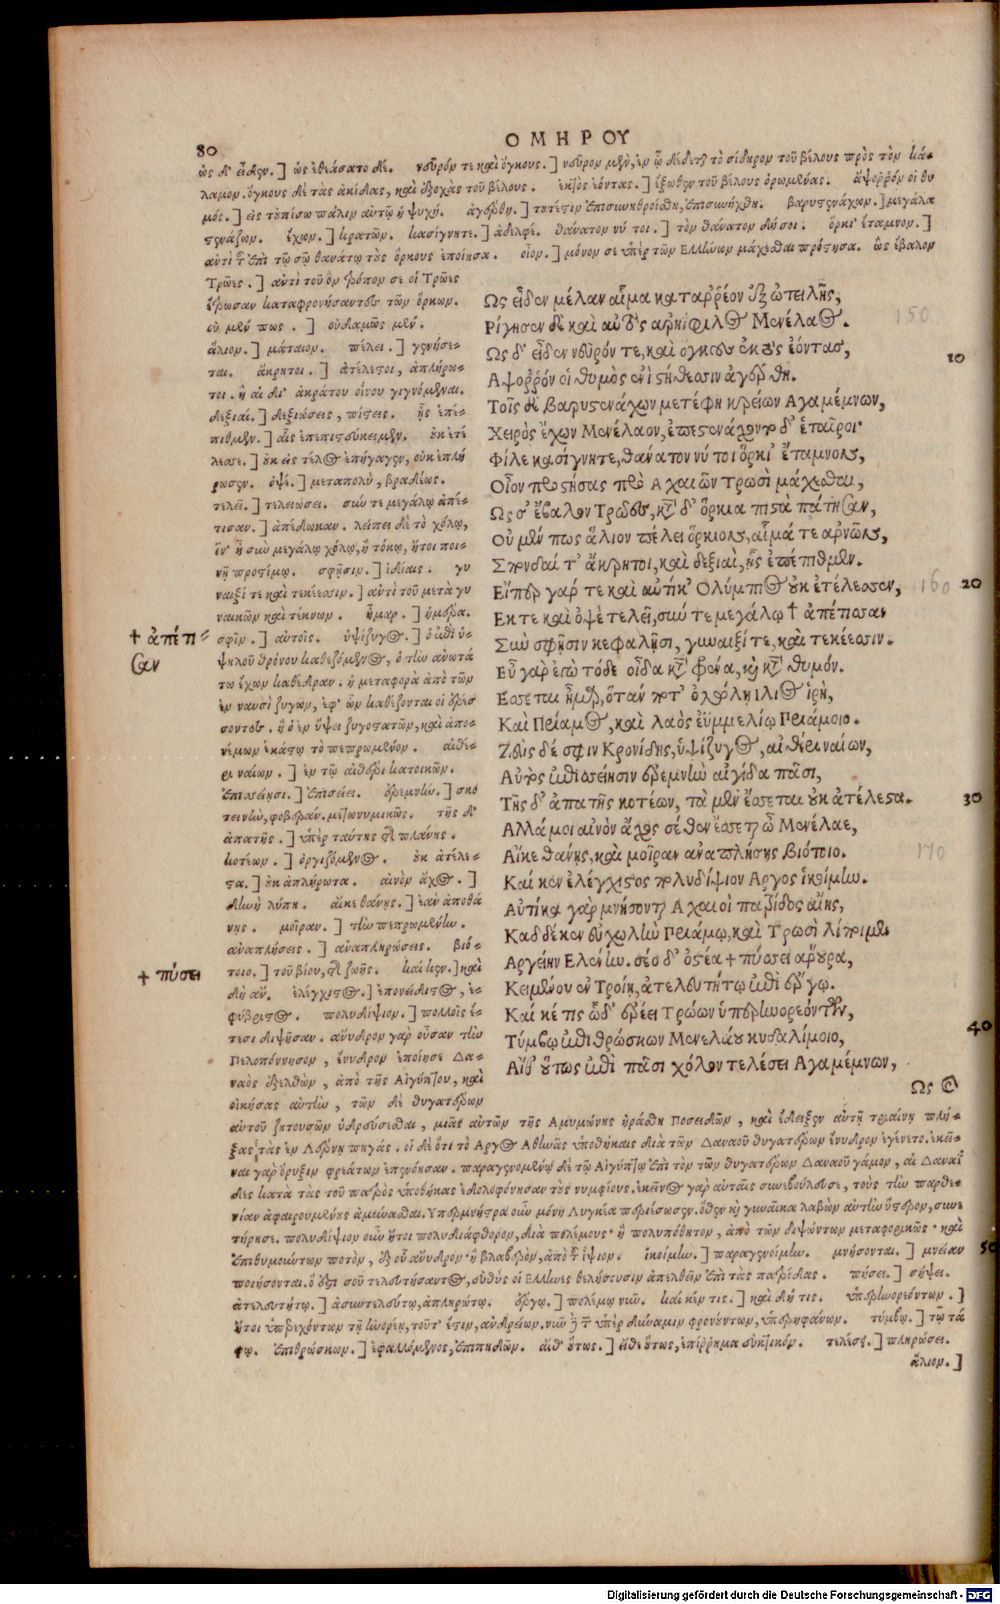 80
ΟΜΗΡΟΥ
ὡς δ' εἶδεν.] ὡς ἐθεάσατο δέ. νεῦρόν τε καὶ ὄγκους.] νεῦρον μὲν, ἐν ᾧ δέδεται τὸ σίδηρον τοῦ βέλους πρὸς τὸν κά-
λαμον. ὄγκους δὲ τὰς ἀκίδας, καὶ ἐξοχὰς τοῦ βέλους. ἐκτὸς ἐόντας.] ἔξωθεν τοῦ βέλους ὁρωμένας. ἄψορρόν οἱ θυ
μός.] εἰς τοὐπίσω πάλιν αὐτῷ ἡ ψυχή. ἀγέρθη.] τουτέστιν ἐπισυνηθροίσθη, ἐπισυνήχθη. βαρυστενάχων.] μεγάλα
στενάζων. ἔχων.] κρατῶν. κασίγνητε.] ἀδελφέ. θάνατον νύ τοι.] τὸν θάνατον δή σοι. ὅρκι' ἔταμνον.]
ἀντὶ τοῦ ἐπὶ τῷ σῷ θανάτῳ τοὺς ὅρκους ἐποίησα. οἶον.] μόνον σε ὑπὲρ τῶν Ελλήνων μάχεσθαι προστήσα. ὥς ἔβαλον
Τρῶες.] ἀντὶ τοῦ ὃν τρόπον σε οἱ Τρῶες
ἔτρωσαν καταφρονήσαντες τῶν ὅρκων.
οὐ μέν πως.] οὐδαμῶς μέν.
ἅλιον.] μάταιον. πέλει.] γενήσε-
ται. ἄκρητοι.] ἀτέλεστοι, ἀπλήρω-
τοι. ἢ αἱ δι' ἀκράτου οἴνου γιγνόμεναι.
δεξιαί.] δεξιώσεις, πίστεις. ᾗς ἐπέ-
πιθμεν.] αἷς ἐπεπιστεύκειμεν. οὐκ ἐτέ
λεσσε.] οὐκ εἰς τέλος ἐπήγαγεν, οὐκ ἐπλή
ρωσεν. ὀψέ.] μεταπολὺ, βραδέως.
τελεῖ.] τελειώσει. σύν τε μεγάλῳ ἀπέ-
τισαν.] ἀπέδωκαν. λείπει δὲ τὸ χόλῳ,
ἵν' ᾖ σὺν μεγάλῳ χόλῳ, ἢ τόκῳ, ἤτοι ποι-
νῇ προστίμῳ. σφῇσιν.] ἰδίαις. γυ
ναιξί τε καὶ τεκέεσσιν.] ἀντὶ τοῦ μετὰ γυ
ναικῶν καὶ τέκνων. ἦμαρ.] ἡμέρα.
σφῖν.] αὐτοῖς. ὑψίζυγος.] ὁ ἐπὶ ὑ-
ψηλοῦ θρόνου καθεζόμενος, ὁ τὴν ἀνωτά
τω ἔχων καθέδραν. ἡ μεταφορὰ ἀπὸ τῶν
ἐν ναυσὶ ζυγῶν, ἐφ' ὧν καθέζονται οἱ ἐρέσ
σοντες. ἢ ὁ ἐν ὕψει ζυγοστατῶν, καὶ ἀπο-
νέμων ἑκάστῳ τὸ πεπρωμένον. αἰθέ-
ρι ναίων.] ἐν τῷ αἰθέρι κατοικῶν.
ἐπισσείῃσι.] ἐπισείει. ἐρεμνὴν.] σκο
τεινὴν, φοβεράν. μετωνυμικῶς. τῆς δ'
ἀπατῆς.] ὑπὲρ ταύτης τῆς πλάνης.
κοτέων.] ὀργιζόμενος. οὐκ ἀτέλε-
στα.] οὐκ ἀπλήρωτα. αἰνὸν ἄχος.]
δεινὴ λύπη. αἴκε θάνῃς.] ἐὰν ἀποθά
νῃς. μοῖραν.] τὴν πεπρωμένην.
ἀναπλήσεις.] ἀναπληρώσεις. βιό-
τοιο.] τοῦ βίου, τῆς ζωῆς. καί κεν.] καὶ
δὴ ἄν. ἐλέγχιστος.] ἐπονείδιστος, ἐ-
φύβριστος. πολυδίψιον.] πολλοῖς ἔ-
τεσι διψῆσαν. ἄνυδρον γὰρ οὖσαν τὴν
Πελοπόννησον, ἔνυδρον ἐποίησε Δα-
ναὸς ἐξελθὼν, ἀπὸ τῆς Αἰγύπτου, καὶ
οἰκήσας αὐτὴν, τῶν δὲ θυγατέρων
αὐτοῦ ζητουσῶν ὑδρεύσεσθαι, μιᾶς αὐτῶν τῆς Αμυμώνης ἠράσθη Ποσειδῶν, καὶ ἔδειξεν αὐτῇ τριαίνῃ πλή-
ξας τὰς ἐν Λέρνῃ πηγάς. οἱ δὲ ὅτι τὸ Αργος Αθηνᾶς ὑποθήκαις διὰ τῶν Δαναοῦ θυγατέρων ἔνυδρον ἐγένετο. ἐκεῖ-
ναι γὰρ ὄρυξιν φρεάτων ἐπενόησαν. παραγενομένῳ δὲ τῷ Αἰγύπτῳ ἐπὶ τὸν τῶν θυγατέρων Δαναοῦ γάμον, αἱ Δαναΐ
δες κατὰ τὰς τοῦ πατρὸς ὑποθήκας ἐδολοφόνησαν τοὺς νυμφίους. ἐκεῖνος γὰρ αὐταῖς συνεβούλευσε, τοὺς τὴν παρθε-
νίαν ἀφαιρουμένους ἀμύνασθαι. Υπερμνήστρα οὖν μόνη Λυγκέα περιέσωσεν. ὅθεν καὶ γυναῖκα λαβὼν αὐτὴν ὕστερον, συνε
τήρησε. πολυδίψιον οὖν ἤτοι πολυδιάφθορον, διὰ πολέμους· ἢ πολυπόθητον, ἀπὸ τῶν διψώντων μεταφορικῶς· καὶ
ἐπιθυμούντων ποτὸν, ἐξ οὗ ἄνυδρον· ἢ βλαβερὸν, ἀπὸ τοῦ ἴψιον. ἱκοίμην.] παραγενοίμην. μνήσονται.] μνείαν
ποιήσονται. ὁ ἔστι σοῦ τελευτήσαντος, εὐθὺς οἱ Ελληνες θελήσουσιν ἀπελθεῖν ἐπὶ τὰς πατρίδας. πύσει.] σήψει.
ἀτελευτήτῳ.] ἀσυντελεύτῳ, ἀπληρώτῳ. ἔργῳ.] πολέμῳ νῦν. καί κέν τις.] καὶ δή τις. ὑπερηνορεόντων.]
ἤτοι ὑπερεχόντων τῇ ἠνορέῃ, τοῦτ' ἔστιν, ἀνδρείων. νῦν δὲ τῶν ὑπὲρ δύναμιν φρονούντων, ὑπερηφάνων. τύμβῳ.] τῷ τά
φῳ. ἐπιθρώσκων.] ἐφαλλόμενος, ἐπιπηδῶν. αἴθ' οὕτως.] εἴθε οὕτως, ἐπίρρημα εὐκτικόν. τελέσῃ.] πληρώσει.
ἅλιον.]
Ως εἶδεν μέλαν αἷμα καταῤῥέον ἐξ ὠτειλῆς,
Ρίγησεν δὲ καὶ αὐτὸς ἀρηίφιλος Μενέλαος.
150
Ως δ' εἶδεν νεῦρόν τε, καὶ ὄγκους ἐκτὸς ἐόντας,
10
Αψοῤῥόν οἱ θυμὸς ἐνὶ στήθεσσιν ἀγέρθη.
Τοῖς δὲ βαρυστενάχων μετέφη κρείων Αγαμέμνων,
Χειρὸς ἔχων Μενέλαον, ἐπεστενάχοντο δ' ἑταῖροι·
Φίλε κασίγνητε, θάνατον νύ τοι ὅρκι' ἔταμνον,
Οἶον προστήσας πρὸ Αχαιῶν Τρωσὶ μάχεσθαι,
Ως σ' ἔβαλον Τρῶες, κατὰ δ' ὅρκια πιστὰ πάτησαν,
Οὐ μέν πως ἅλιον πέλει ὅρκιον, αἷμά τε ἀρνῶν,
Σπονδαί τ' ἄκρητοι, καὶ δεξιαὶ, ᾗς ἐπέπιθμεν.
Εἴπερ γάρ τε καὶ αὐτίκ' Ολύμπιος οὐκ ἐτέλεσσεν,
160
20
Εκ τε καὶ ὀψὲ τελεῖ, σύν τε μεγάλῳ † ἀπέτισαν
Σὺν σφῇσιν κεφαλῇσι, γυναιξί τε, καὶ τεκέεσσιν.
Εὖ γὰρ ἐγὼ τόδε οἶδα κατὰ φρένα, καὶ κατὰ θυμόν.
Εσσεται ἦμαρ, ὅταν ποτ' ὀλώλῃ Ιλιος ἱρὴ,
Καὶ Πρίαμος, καὶ λαὸς ἐϋμμελίω Πριάμοιο.
Ζεὺς δέ σφιν Κρονίδης, ὑψίζυγος, αἰθέρι ναίων,
Αὐτὸς ἐπισσείῃσιν ἐρεμνὴν αἰγίδα πᾶσι,
Τῆς δ' ἀπατῆς κοτέων, τὰ μὲν ἔσσεται οὐκ ἀτέλεστα.
30
Αλλά μοι αἰνὸν ἄχος σέθεν ἔσσεται ὦ Μενέλαε,
Αἴκε θάνῃς, καὶ μοῖραν ἀναπλήσῃς βιότοιο.
170
Καί κεν ἐλέγχιστος πολυδίψιον Αργος ἱκοίμην.
Αὐτίκα γὰρ μνήσονται Αχαιοὶ πατρίδος αἴης,
Καδδέ κεν εὐχωλὴν Πριάμῳ, καὶ Τρωσὶ λίποιμεν
Αργείην Ελένην. σέο δ' ὀστέα † πύσσει ἄρουρα,
Κειμένου ἐν Τροίῃ, ἀτελευτήτῳ ἐπὶ ἔργῳ.
Καί κέ τις ὧδ' ἐρέει Τρώων ὑπερηνορεόντων,
Τύμβῳ ἐπιθρώσκων Μενελάου κυδαλίμοιο,
40
Αἴθ' οὕτως ἐπὶ πᾶσι χόλον τελέσει Αγαμέμνων,
Ως καὶ
† ἀπέτι-
σαν
† πύσει
50
Digitalisierung gefördert durch die Deutsche Forschungsgemeinschaft - DFG